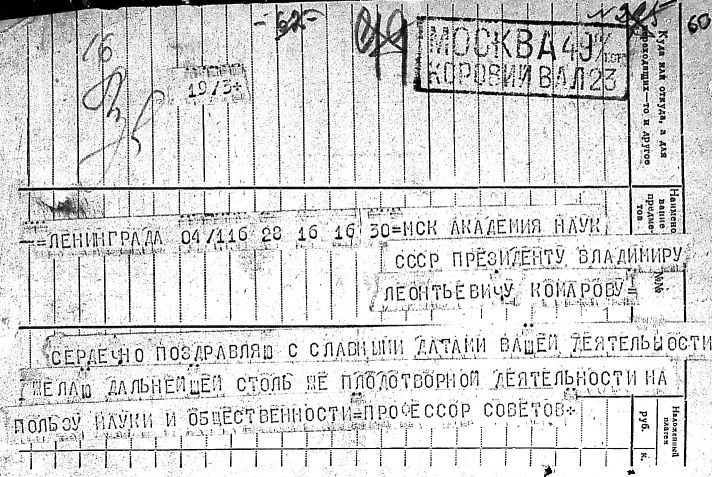 16
60
МОСКВА 49
КОРОВИЙ ВАЛ 23
19/3+
Куда или откуда, а для
проходящих—то и другое
Наимено-
вание
предме-
тов
=ЛЕНИНГРАДА 04/116 28 16 16 30=МСК АКАДЕМИЯ НАУК
СССР ПРЕЗИДЕНТУ ВЛАДИМИРУ
ЛЕОНТЬЕВИЧУ КОМАРОВУ=
№№
СЕРДЕЧНО ПОЗДРАВЛЯЮ С СЛАВНЫМИ ДАТАМИ ВАШЕЙ ДЕЯТЕЛЬНОСТИ
ЖЕЛАЮ ДАЛЬНЕЙШЕЙ СТОЛЬ ЖЕ ПЛОДОТВОРНОЙ ДЕЯТЕЛЬНОСТИ НА
ПОЛЬЗУ НАУКИ И ОБЩЕСТВЕННОСТИ=ПРОФЕССОР СОВЕТОВ+
Наложенный
платеж
РУБ.
К.